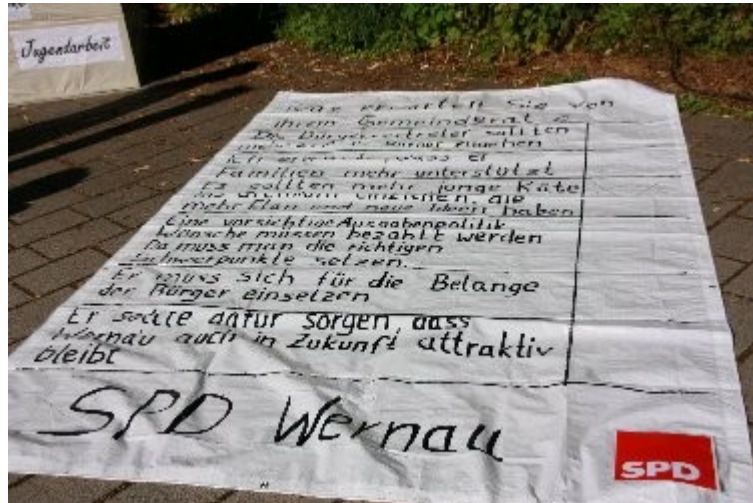 Jugendarbeit
Was erwarten Sie von
ihrem Gemeinderat?
Die Bürgervertreter sollten
mehr auf die Bürger eingehen
Ich erwarte, dass er
Familien mehr unterstützt
Es sollten mehr junge Räte
einziehen, die
mehr Plan und neue Ideen haben
Eine vorsichtige Ausgabenpolitik
Wünsche müssen bezahlt werden
Da muss man die richtigen
Schwerpunkte setzen.
Er muss sich für die Belange
der Bürger einsetzen
Er sollte dafür sorgen, dass
Wernau auch in Zukunft attraktiv
bleibt
SPD Wernau
SPD